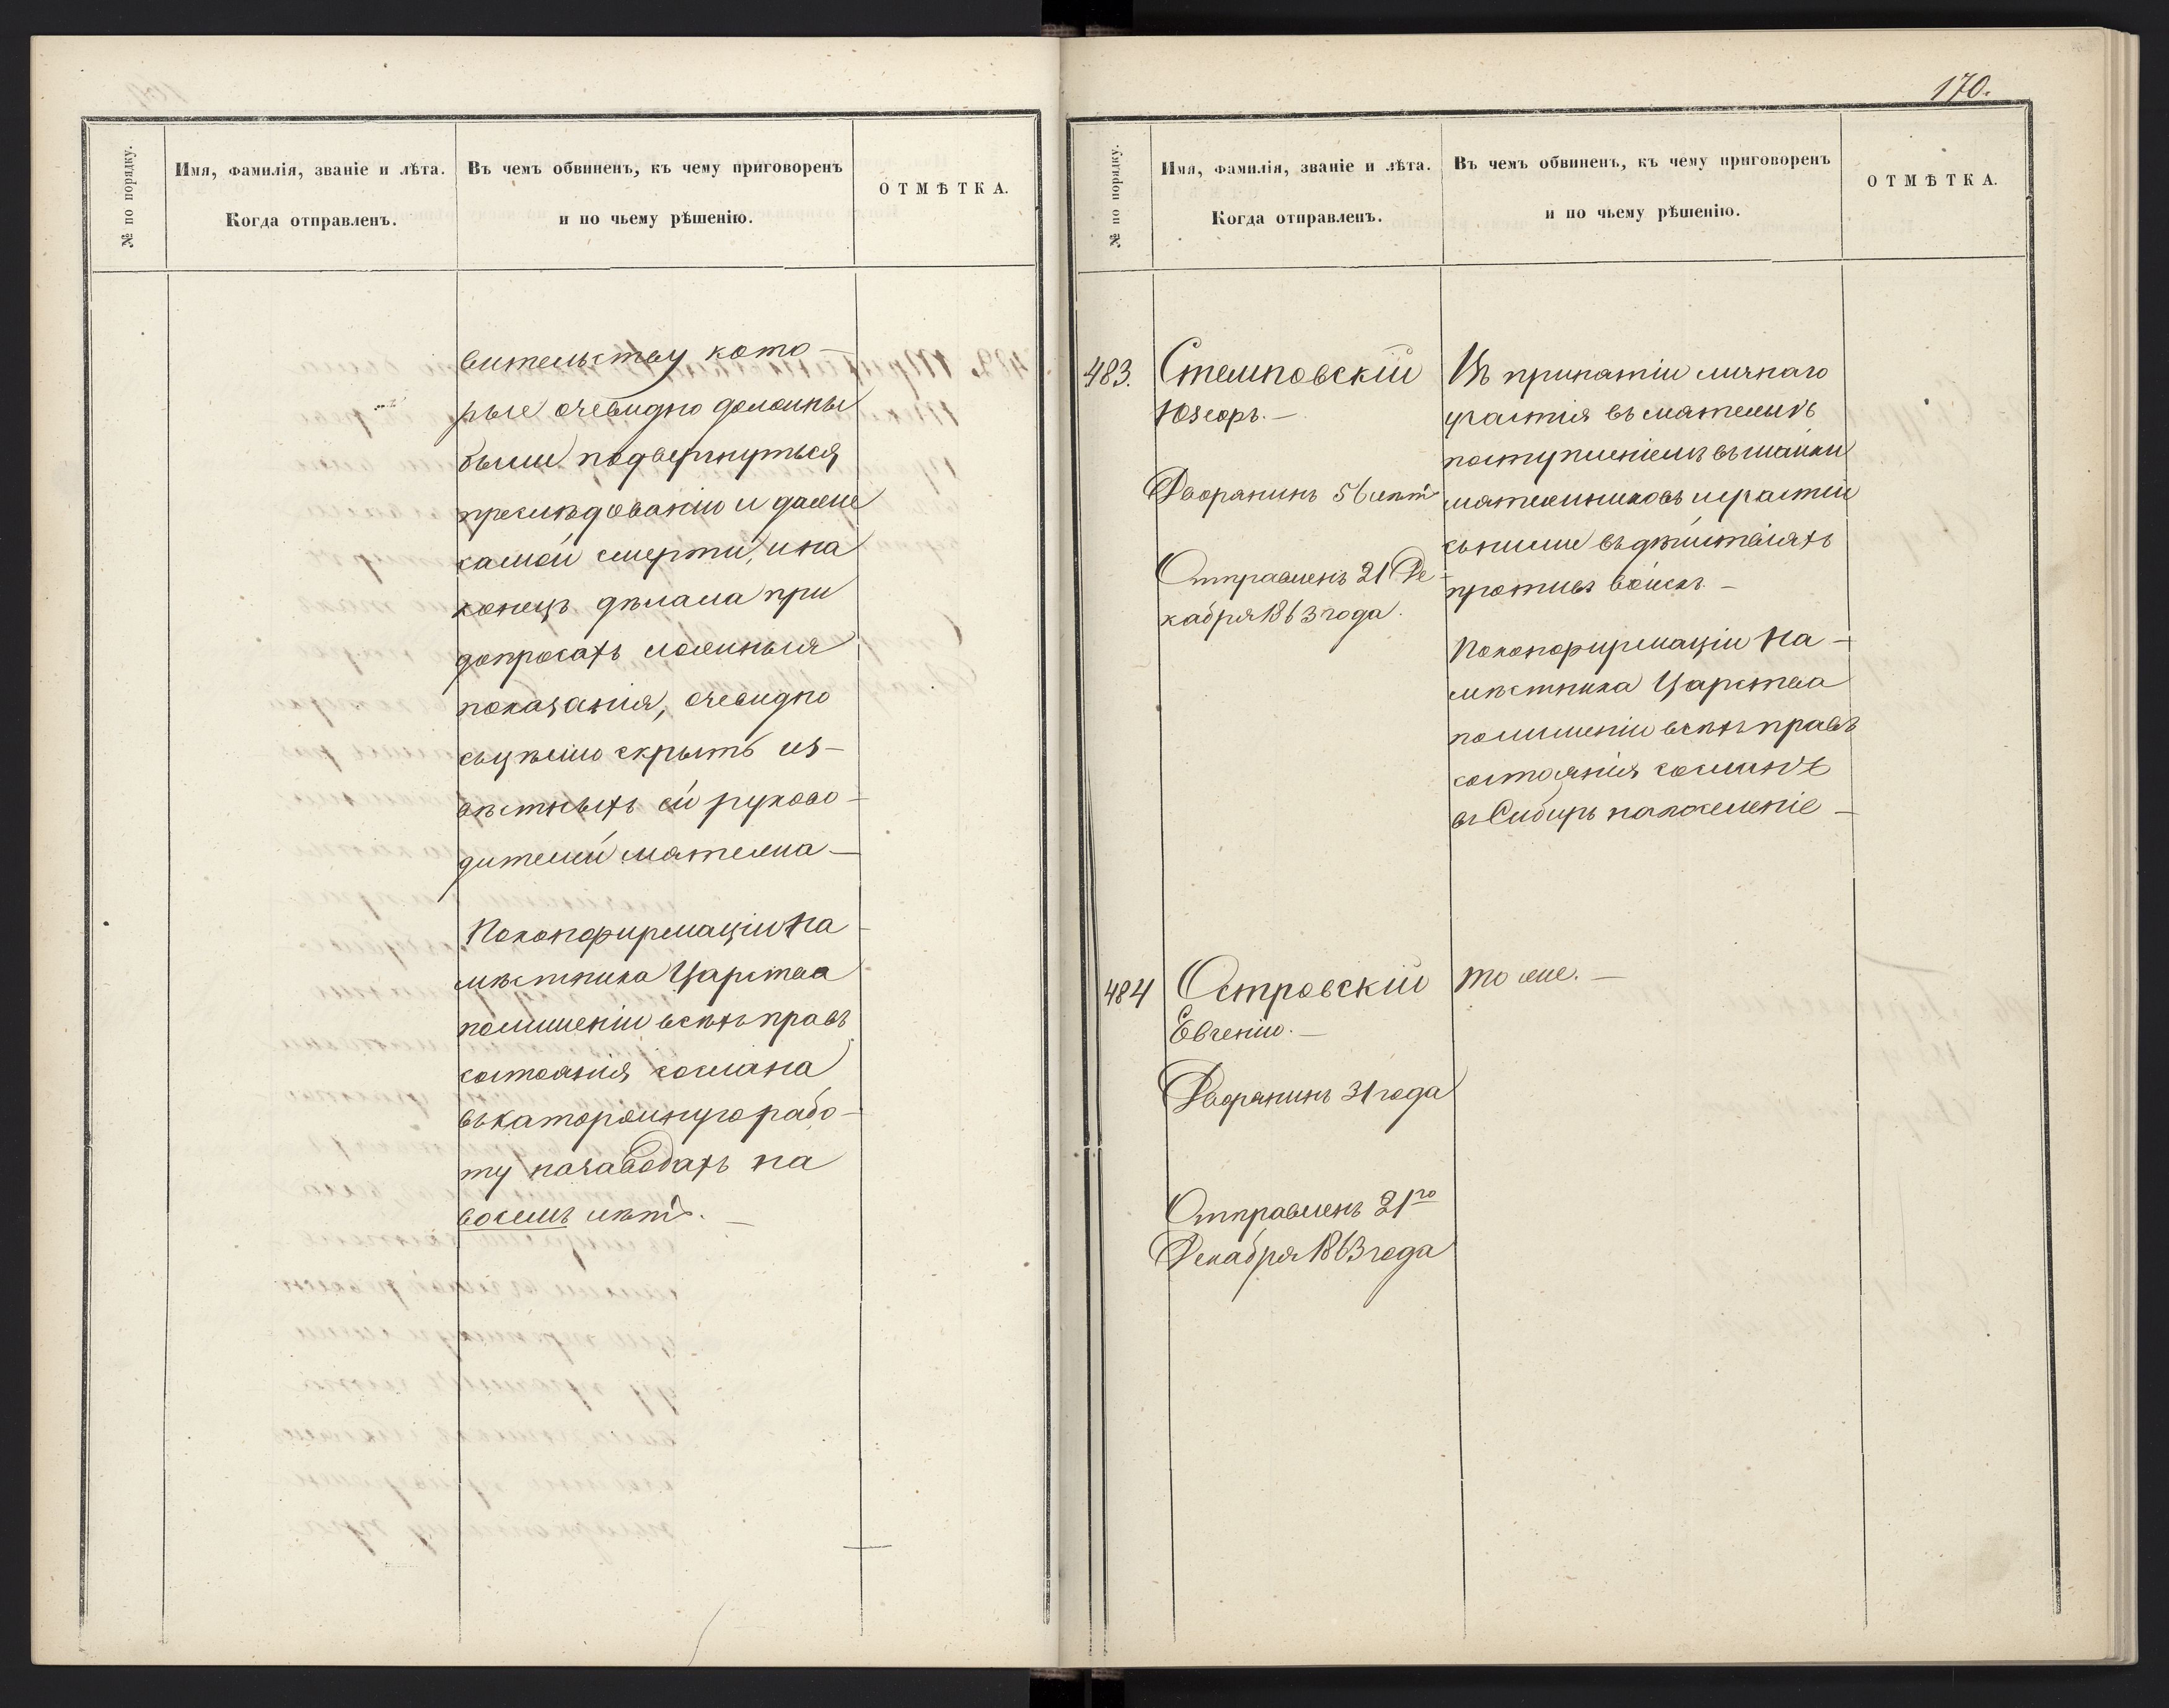 № по порядку.
Имя, фамилія, званіе и лѣта.
Когда отправленъ.
Въ чемъ обвиненъ, къ чему приговоренъ
и по чьему рѣшенію.
ОТМѢТКА.
вительству кото-
рые очевидно должны
были подвергнуться
преслѣдованію и даже
самой смерти, и на
конецъ дѣлала при
допросахъ ложныя
показанія, очевидно
съ цѣлію скрыть из-
вѣстныхъ ей руково-
дителей мятежа —
По конфирмаціи На
мѣстника Царства
по лишеніи всѣхъ правъ
состоянія сослана
въ каторжную рабо-
ту на заводахъ на
восемь лѣтъ. —
170.
№ по порядку.
Имя, фамилія, званіе и лѣта.
Когда отправленъ.
Въ чемъ обвиненъ, къ чему приговоренъ
и по чьему рѣшенію.
ОТМѢТКА.
483.
Стемповскій
Юзефъ. —
Дворянинъ 56 лѣтъ
Отправленъ 21 Де-
кабря 1863 года.
Въ принятіи личнаго
участія въ мятежѣ
поступленіемъ въ шайки
мятежниковъ и участіи
съ ними въ дѣйствіяхъ
противъ войскъ. —
По конфирмаціи На-
мѣстника Царства
по лишеніи всѣхъ правъ
состоянія сосланъ
въ Сибирь на поселеніе —
484
Островскій
Евгеній. —
Дворянинъ 31 года
Отправленъ 21го
Декабря 1863 года
то же. —